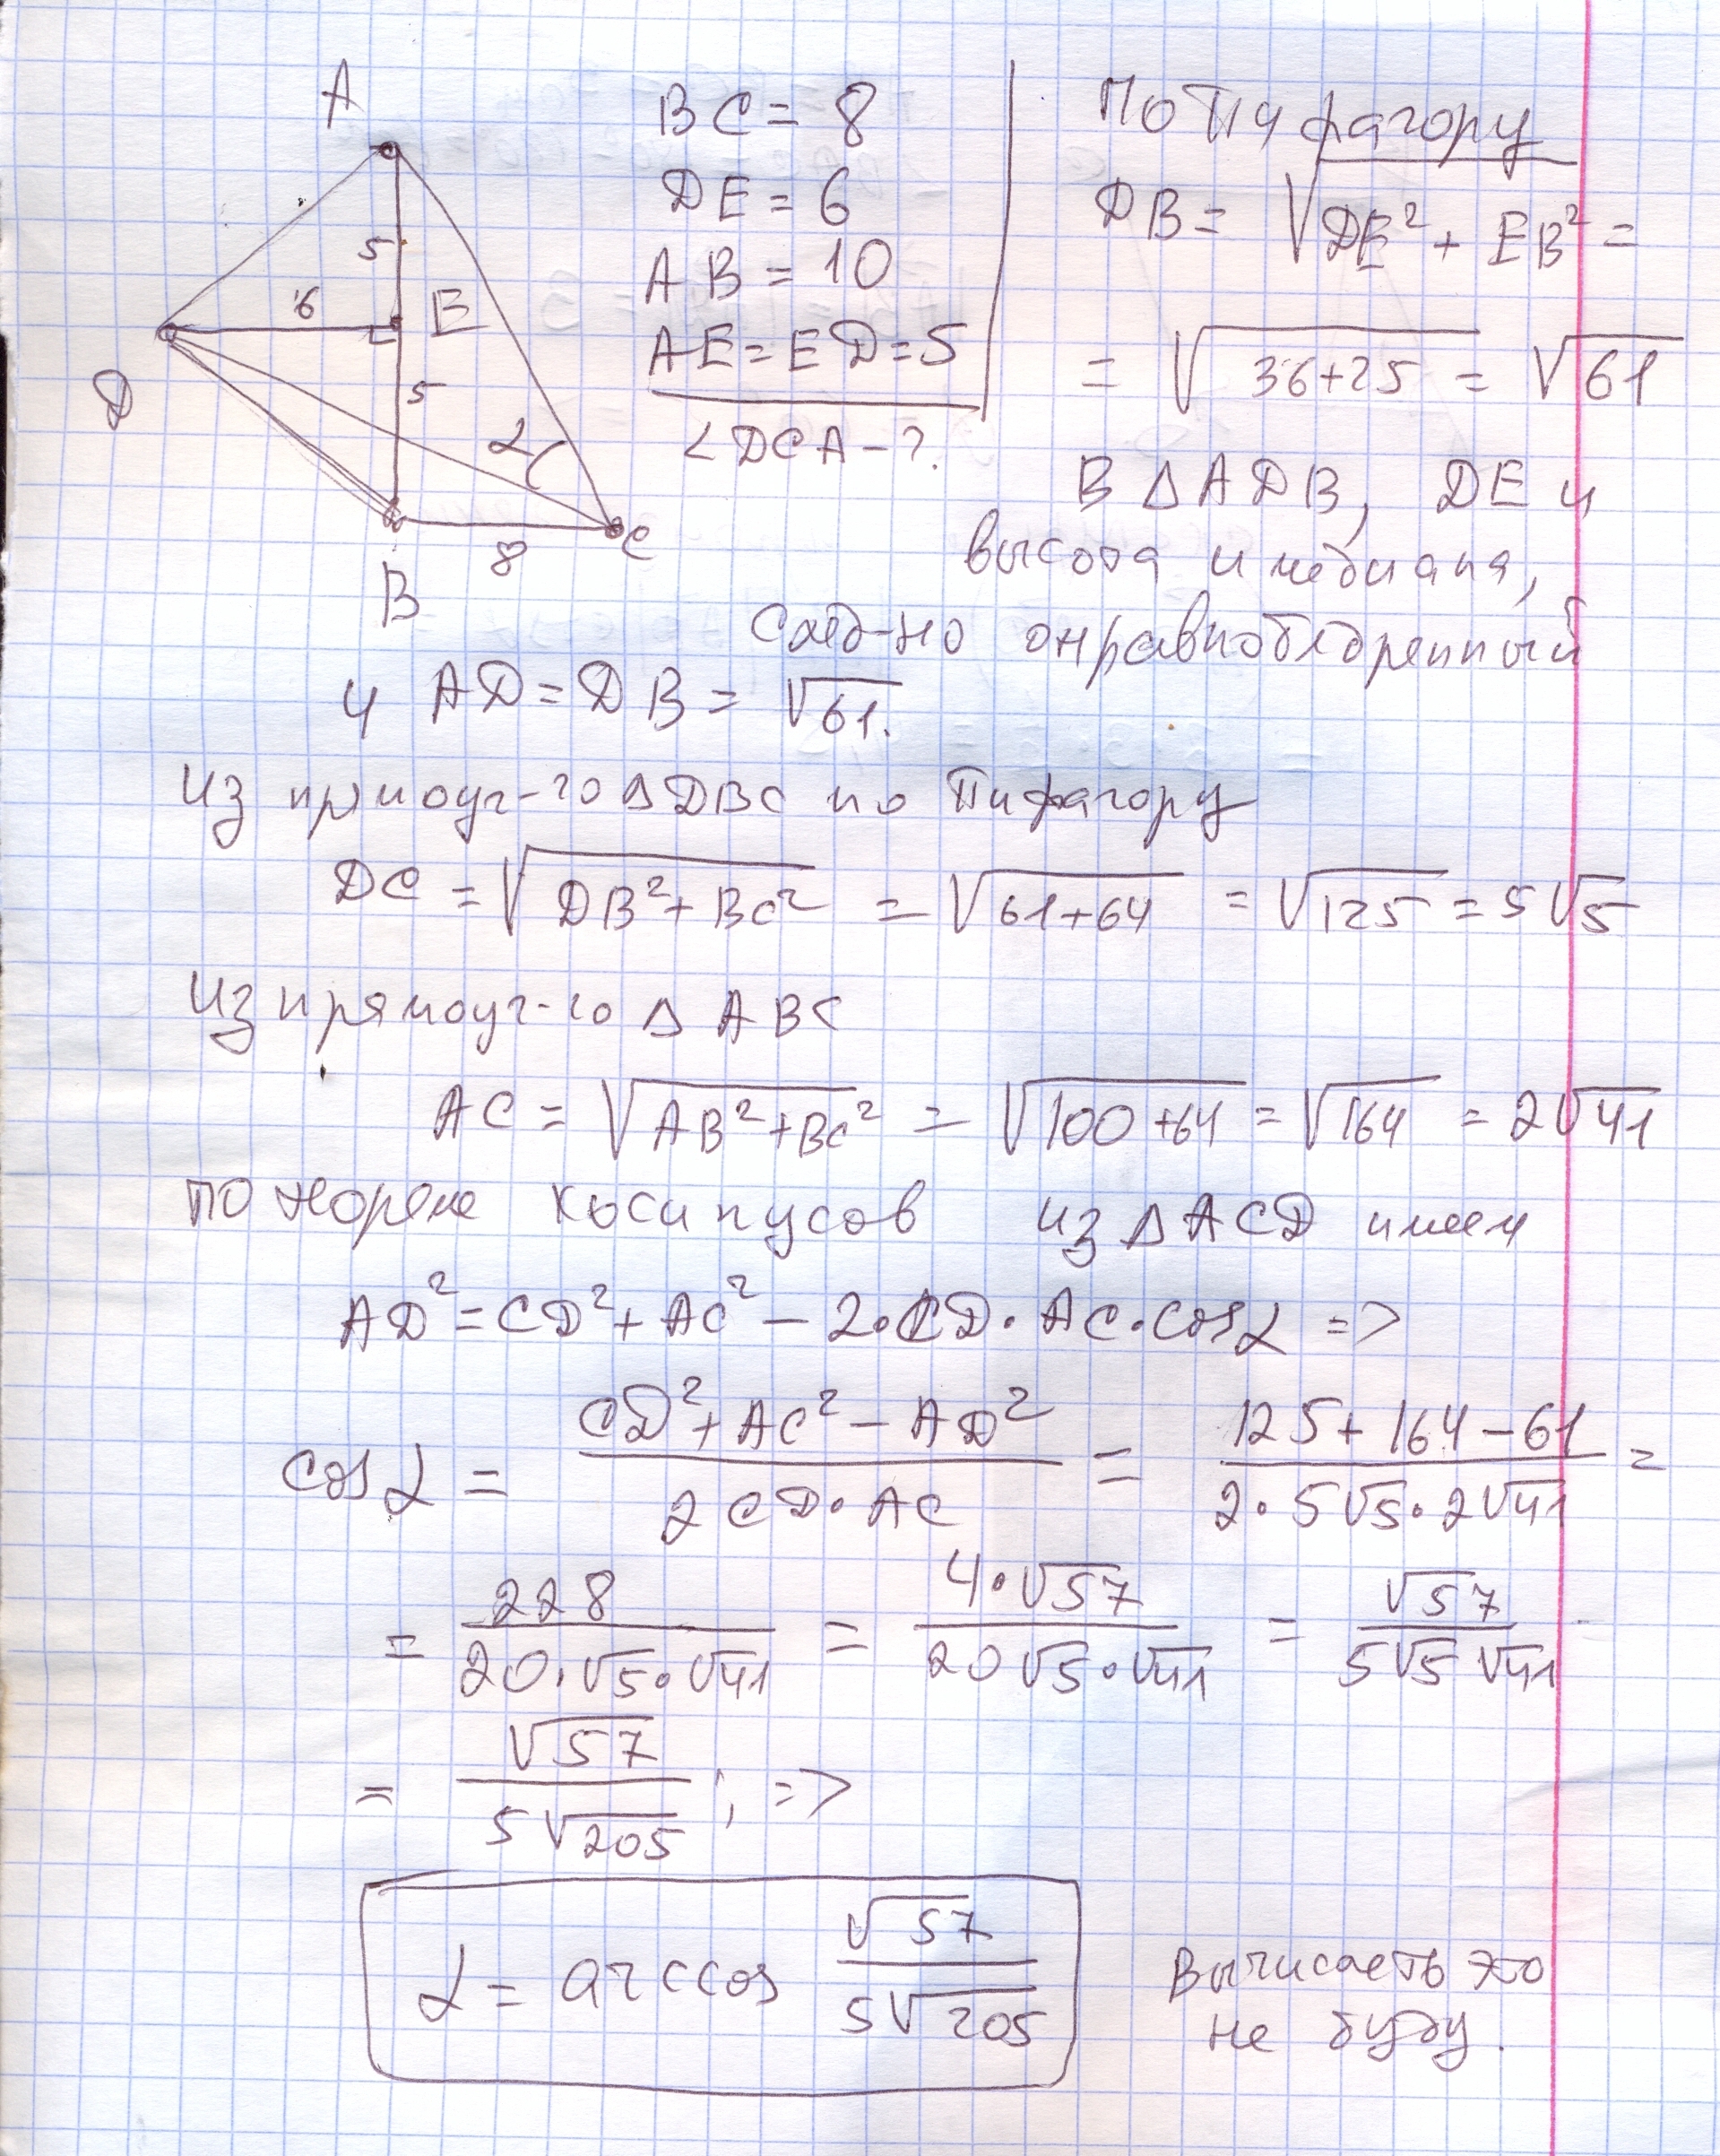 A
5
6
E
5
D
α
8
C
B
BC = 8
DE = 6
AB = 10
AE = ED = 5
∠DCA - ?
По Пифагору
DB = √DE² + EB² =
= √36+25 = √61
В △ADB, DE и
высота и медиана,
след-но он равнобедренный
и AD = DB = √61.
Из прямоуг-го △DBC по Пифагору
DC = √DB² + BC² = √61+64 = √125 = 5√5
Из прямоуг-го △ABC
AC = √AB² + BC² = √100+64 = √164 = 2√41
По теореме косинусов из △ACD имеем
AD² = CD² + AC² - 2·CD·AC·cosα =>
cosα = CD² + AC² - AD² / 2CD·AC = 125 + 164 - 61 / 2·5√5·2√41 =
= 228 / 20·√5·√41 = 4·√57 / 20√5·√41 = √57 / 5√5 √41
= √57 / 5√205 ; =>
α = arccos √57 / 5√205
Вычислять это
не буду.